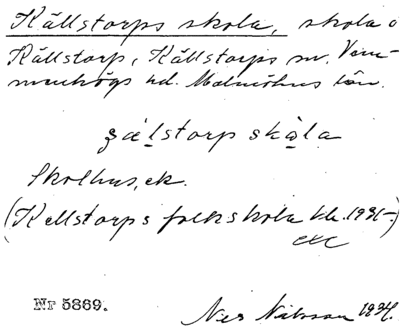 Källstorps skola, skola o
Källstorp, Källstorps sn. Vem-
menhögs hd. Malmöhus län.
skåla
Skolhus, ek.
(Kellstorps folkskola kla. 1931-)
etc
Nr 5869.
Nils Nilsson 1934.